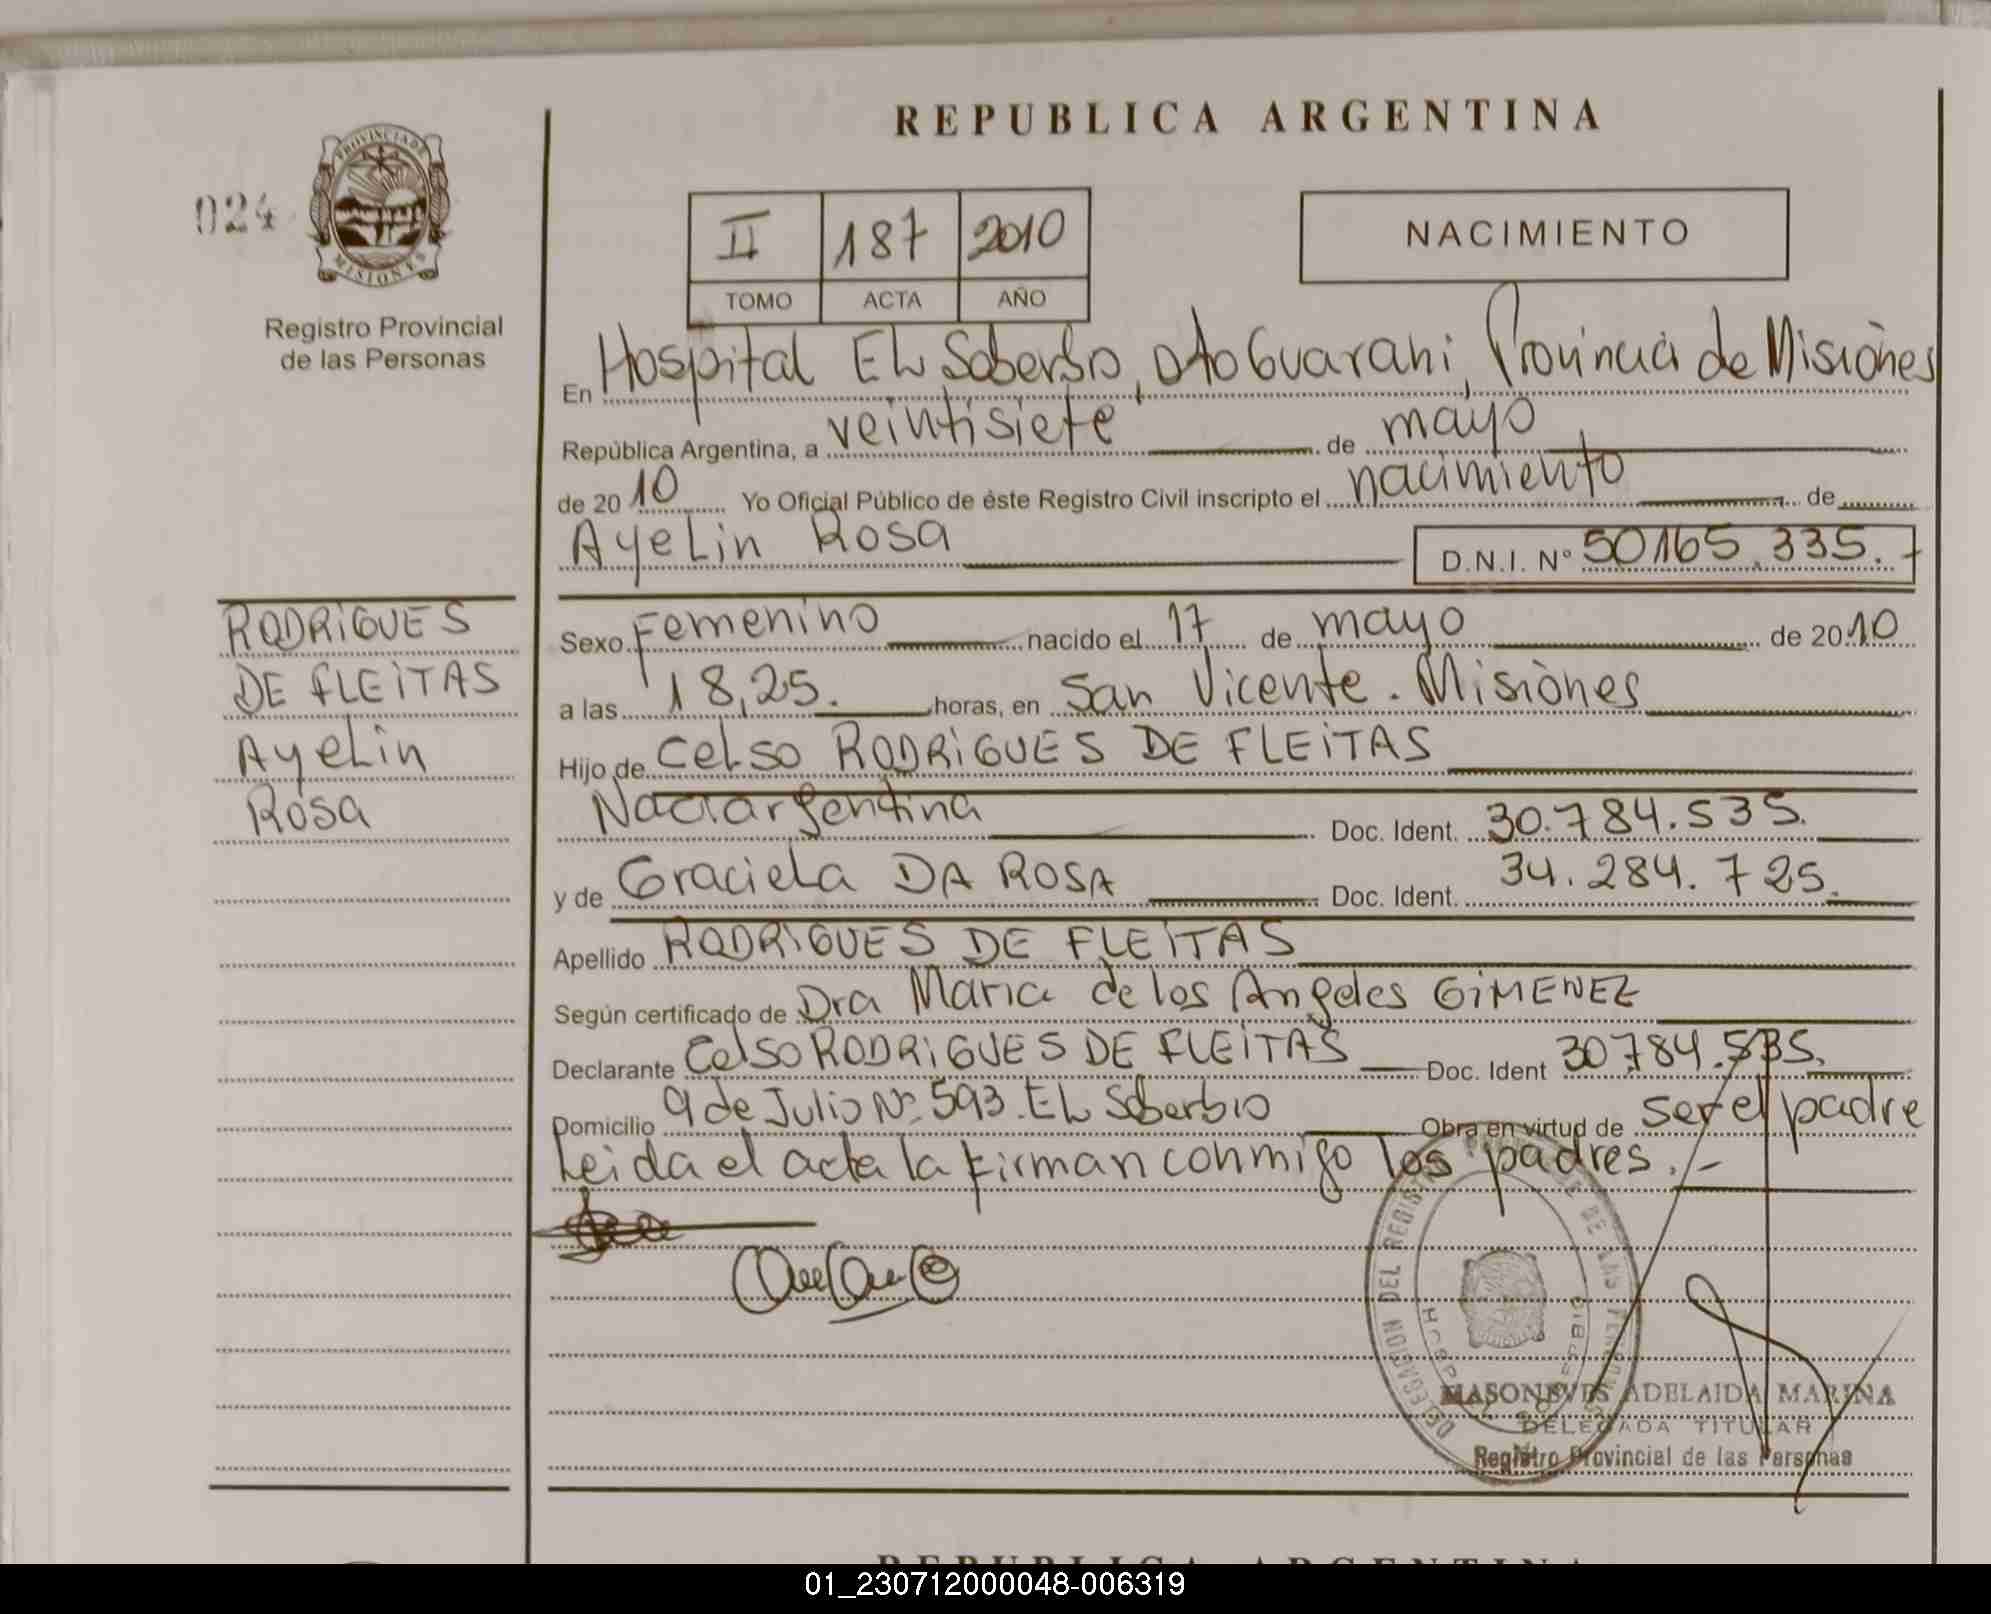 REPUBLICA ARGENTINA
024
PROVINCIA DE
MISIONES
Registro Provincial
de las Personas
II 187 2010
TOMO ACTA AÑO
NACIMIENTO
En Hospital EL Soberbio, Dto Guarani, Provincia de Misiònes
República Argentina, a veintisiete de mayo
de 2010 Yo Oficial Público de èste Registro Civil inscripto el nacimiento de
Ayelin Rosa D.N.I. Nº 50165.335.
RODRIGUES
DE FLEITAS
Ayelin
Rosa
Sexo Femenino nacido el 17 de mayo de 2010
a las 18,25. horas, en San Vicente. Misiònes
Hijo de Celso RODRIGUES DE FLEITAS
Nac argentina Doc. Ident. 30.784.535.
y de Graciela DA ROSA Doc. Ident. 34.284.725.
Apellido RODRIGUES DE FLEITAS
Según certificado de Dra Maria de los Angeles GIMENEZ
Declarante Celso RODRIGUES DE FLEITAS Doc. Ident 30.784.535.
Domicilio 9 de Julio Nº 593. EL Soberbio Obra en virtud de ser el padre
Leida el acta la firman conmigo los padres.-
DELEGACION DEL REGISTRO DE LAS PERSONAS
HOSPITAL SOBERBIO
MASONEVES ADELAIDA MARINA
DELEGADA TITULAR
Registro Provincial de las Personas
REPUBLICA ARGENTINA
01_230712000048-006319